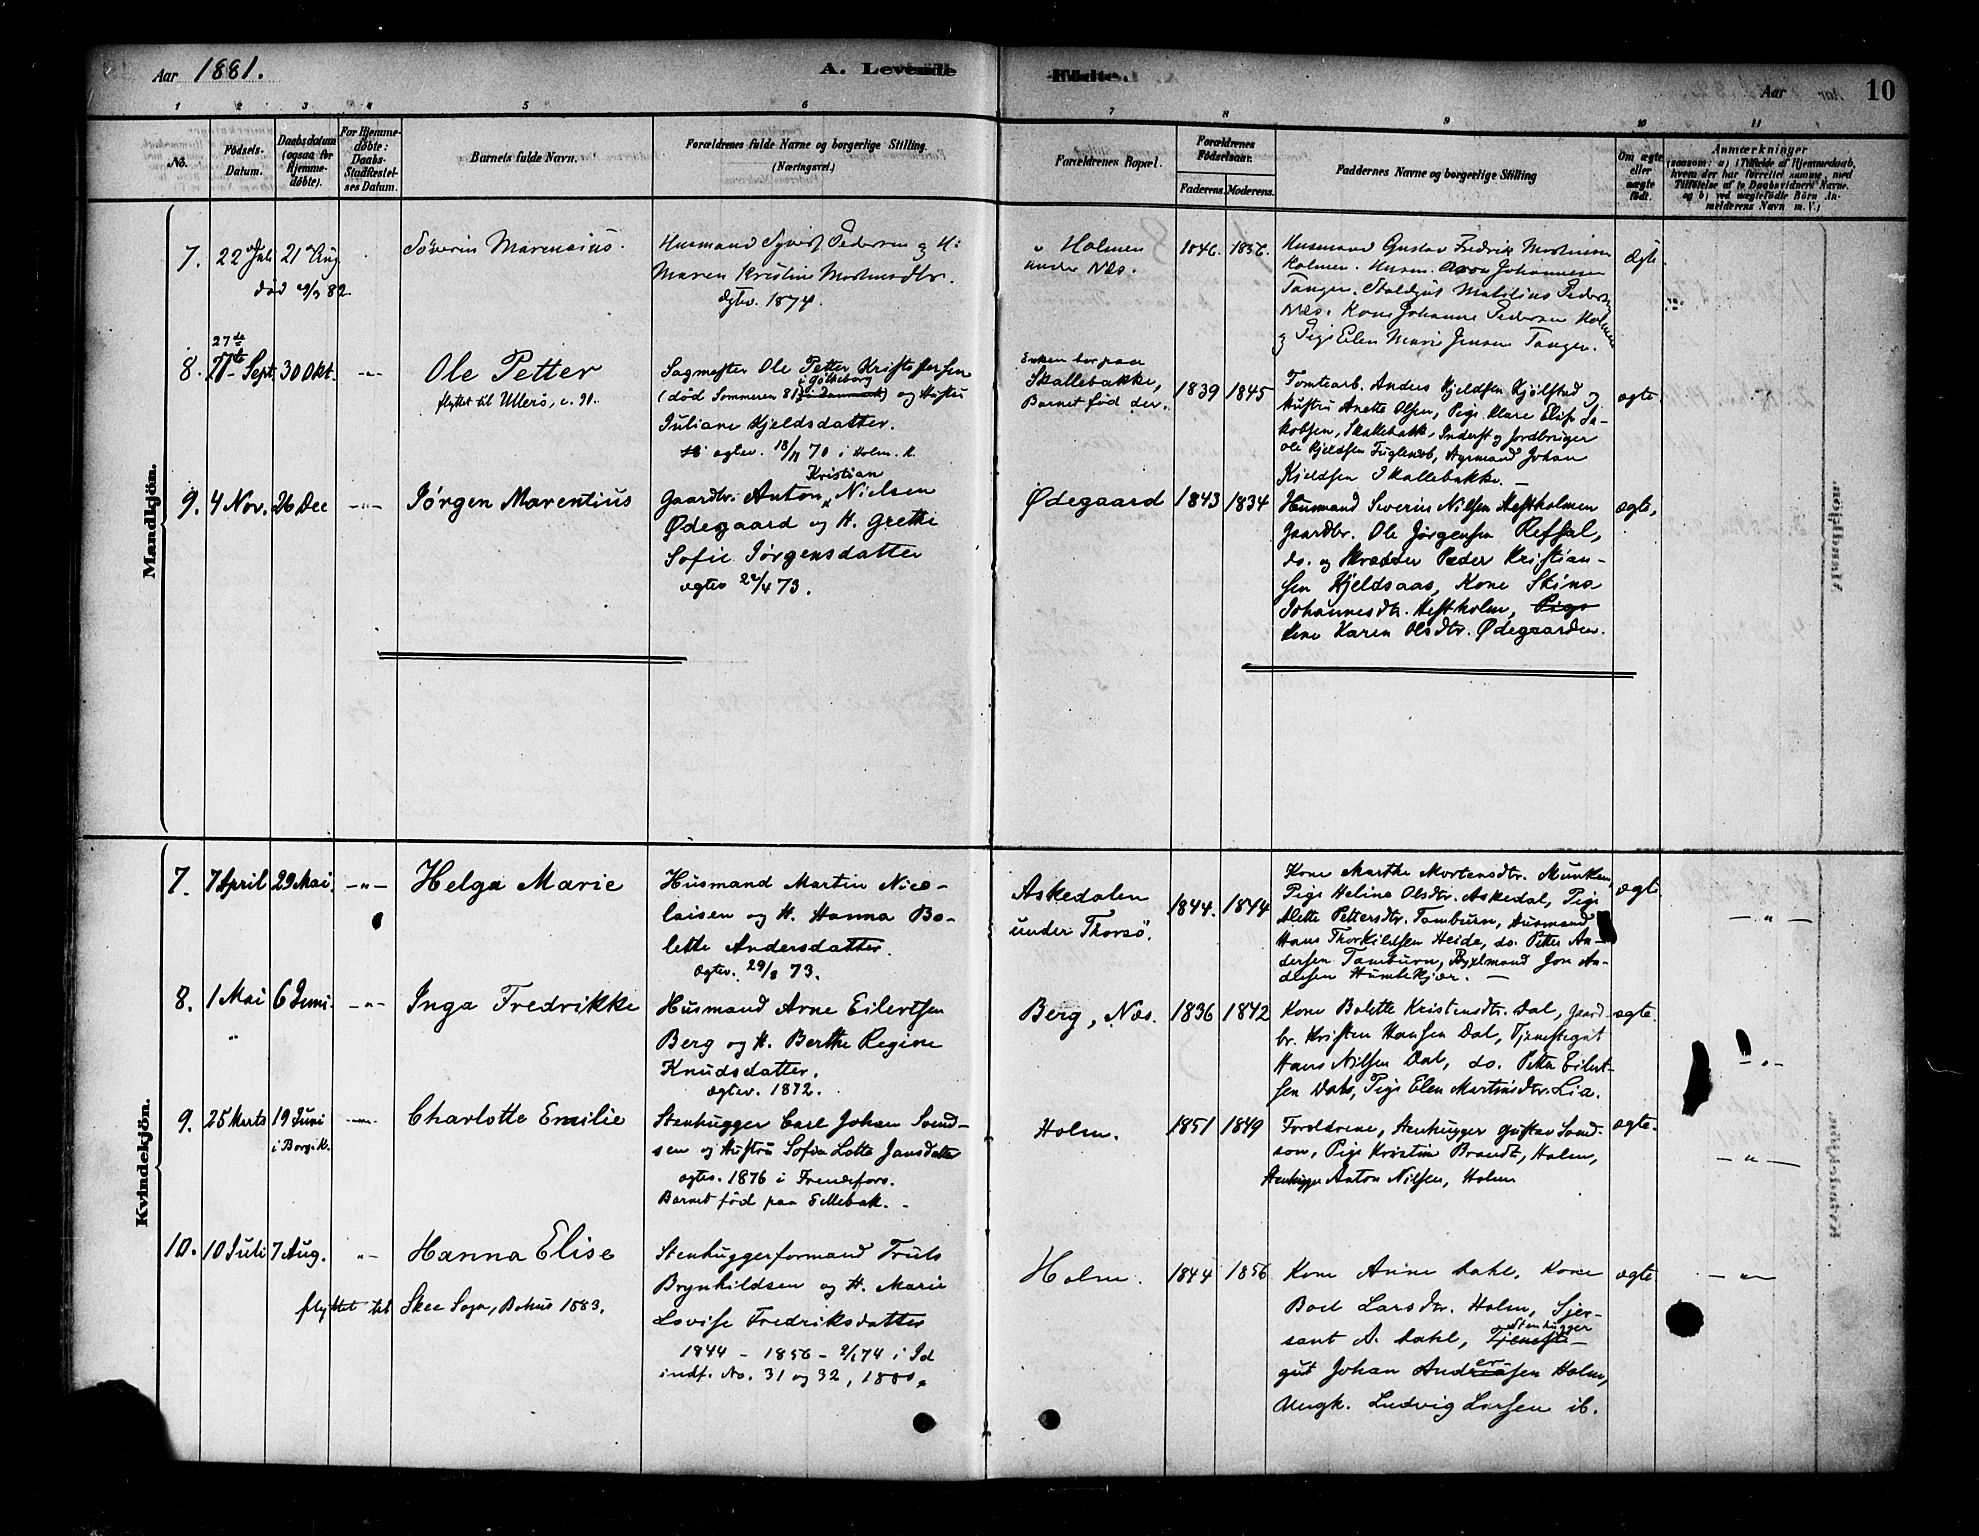 Aar 1881.
A. Levende
Fødte.
Aar
10
1 2 3 4 5 6 7 8 9 10 11
No.
Fødsels-
Datum.
Daabsdatum
(ogsaa for
Hjemme-
døbte).
For Hjemme-
døbte:
Daabs-
Stadfæstel-
ses Datum.
Barnets fulde Navn.
Forældrenes fulde Navne og borgerlige Stilling.
(Næringsvei.)
Forældrenes Bopæl.
Forældrenes
Fødselsaar.
Faderens. Moderens.
Faddernes Navne og borgerlige Stilling
Om ægte
eller
uægte
født.
Anmærkninger
(saasom: a) i Tilfælde af Hjemmedaab,
hvem der har forrettet samme, med
Tilføielse af to Daabsvidners Navne.
og b) ved uægtefødte Børn An-
melderens Navn m. V.)
Mandkjön.
7. 22 Juli 21 Aug
død 29/3 82
Severin Marensius.
Husmand Syvert Pedersen og H:
Maren Kristine
ægtev. 1874.
Holmen
under Næs.
1846. 1856.
Husmand Gustav Fredrik
Holmen. Husm. Johannesen
Tangen. Matilius
Næs. Kone Johanne Pedersen
og Pige Elen Marie Jensen Tangen.
ægte
27de
8. Sept. 30 Okt. -"-
Ole Petter
flyttet til Ullerö, v. 91.
Sagmester Ole Petter Kristoffersen
i Götheborg
(død Sommeren 81 i Danmark) og Hustru
Juliane Kjeldsdatter.
ægtev. 13/11 70 i Holm. K.
Enken bor paa
Skallebakke,
Barnet fød der.
1839 1845
Tomtearb. Anders Kjeldsen Kjølstad og
Hustru Anette Olsen, Pige Klara Elise Ja-
kobsen, Skallebakk, Inderst og Jordbruger
Ole Kjeldsen Fuglenæb, Johan
Kjeldsen Skallebakke. —
ægte
9. 4 Nov. 26 Dec -"-
Jørgen Marentius
Kristian
Gaardbr. Anton Nielsen
Ødegaard og H. Grethe
Sofie Jørgensdatter
ægtev 22/4 73.
Ødegaard
1843 1834
Husmand Severin Nilsen Hestholmen
Gaardbr. Ole Jørgensen Refsal,
do. og Skrædder Peder Kristian-
sen Kjeldsaas, Kone Skina
Johannesdtr. Hestholm, Pige
Lene Karen Olsdtr. Ødegaarden.
ægte,
Kvindekjön.
7. 7 April 29 Mai. -"-
Helga Marie
Husmand Martin Nico-
laisen og H. Hanna Bo-
lette Andersdatter.
ægtev. 29/3 73.
Askedalen
under Thorsö.
1844. 1844
Kone Marthe Mortensdtr. Munken,
Pige Heline Olsdtr. Askedal, Pige
Alette Pettersdtr. Tamburn, Husmand
Hans Thorkildsen Heide, do. Petter An-
dersen Tamburn, Byxelmand Jon An-
dersen Humlekjær. —
ægte
— " —
8. 1 Mai 6 Juni. -"-
"
Inga Fredrikke
Husmand Arne Eilertsen
Berg og H. Berthe Regine
Knudsdatter.
ægtev. 1872.
Berg, Næs.
1836 1842
Kone Bolette Kristensdtr. Dal, Gaard-
br. Kristen Hansen Dal, Tjenestegut
Hans Nilsen Dal, do. Petter Eilert-
sen Dal, Pige Elen Martinsdtr. Lia.
ægte.
— " —
9. 25 Marts 19 Juni -"-
i Borge K.
Charlotte Emilie
Stenhugger Carl Johan Svend-
sen og Hustru Sofia Lotta Jansdatter
ægtev. 1876 i Frendefors.
Barnet fød paa Gellebæk. -
Holm.
1851 1849
Forældrene, Stenhugger Gustav Svend-
son, Pige Kristine Brandt, Holm,
Stenhugger Anton Nilsen, Holm
ægte.
— " —
10. 10 Juli 7 Aug. "-
Hanna Elise
flyttet til Skee Sogn, Bohus 1883.
Stenhuggerformand Truls
Brynhildsen og H. Marie
Lovise Fredriksdatter
1844 - 1856 - 2/1 74 i Id
indf. No. 31 og 32, 1880.
Holm.
1844 1856
Kone Anne Dahl, Kone
Boel Larsdtr. Holm, Sjer-
Stenhugger
sant A. Dahl, Tjeneste-
gut Johan Andersen Holm,
Ungk. Ludvig Larsen ib.
ægte
— " —